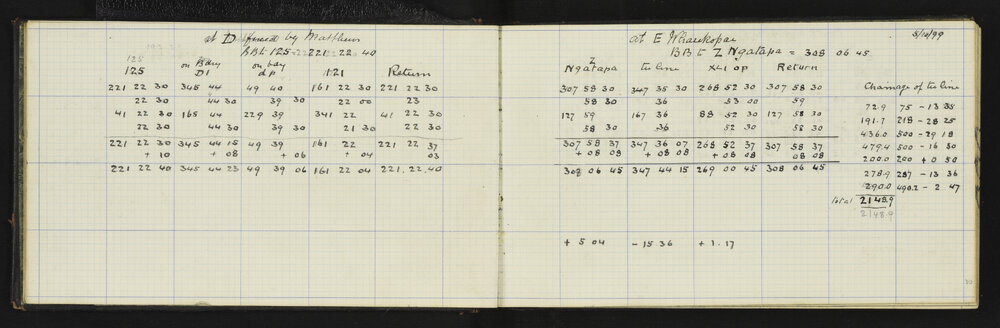 at D fixed by Matthews
BBt 125 = 221 22 40
125
on Bdry D1
on bdy dp
121
Return
221 22 30 345 44 49 40 161 22 30 221 22 30
22 30 44 30 39 30 22 00 23
41 22 30 165 44 229 39 341 22 41 22 30
22 30 44 30 39 30 21 30 22 30
221 22 30 345 44 15 49 39 161 22 221 22 37
+ 10 + 08 + 06 + 04 03
221 22 40 345 44 23 49 39 06 161 22 04 221.22.40
at E Wharekopae
5/10/99
BBt Z Ngatapa = 308 06 45
Z Ngatapa
tr line
XLI op
Return
307 58 30 347 35 30 268 52 30 307 58 30
58 30 36 53 00 59
127 59 167 36 88 52 30 127 58 30
58 30 .36 52 30 58 30
307 58 37 347 36 07 268 52 37 307 58 37
+ 08 08 + 08 08 + 08 08 08 08
308 06 45 347 44 15 269 00 45 308 06 45
+ 5 04 - 15 36 + 1.17
Chainage of tr line
72.9 75 - 13 35
191.7 218 - 28 25
436.0 500 - 29 18
479.4 500 - 16 30
200.0 200 + 0 50
278.9 287 - 13 36
490.0 490.2 - 2 47
total 2148.9
2148.9